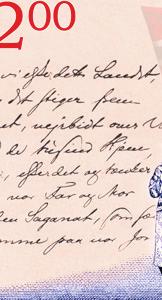 2⁰⁰
vi elsker dette Landet,
det stiger frem
et, vejrbidt over V
de tusind Hjem,
, elsker det og tænker
vor Far og Mor
den Saganat, som
vor Jor